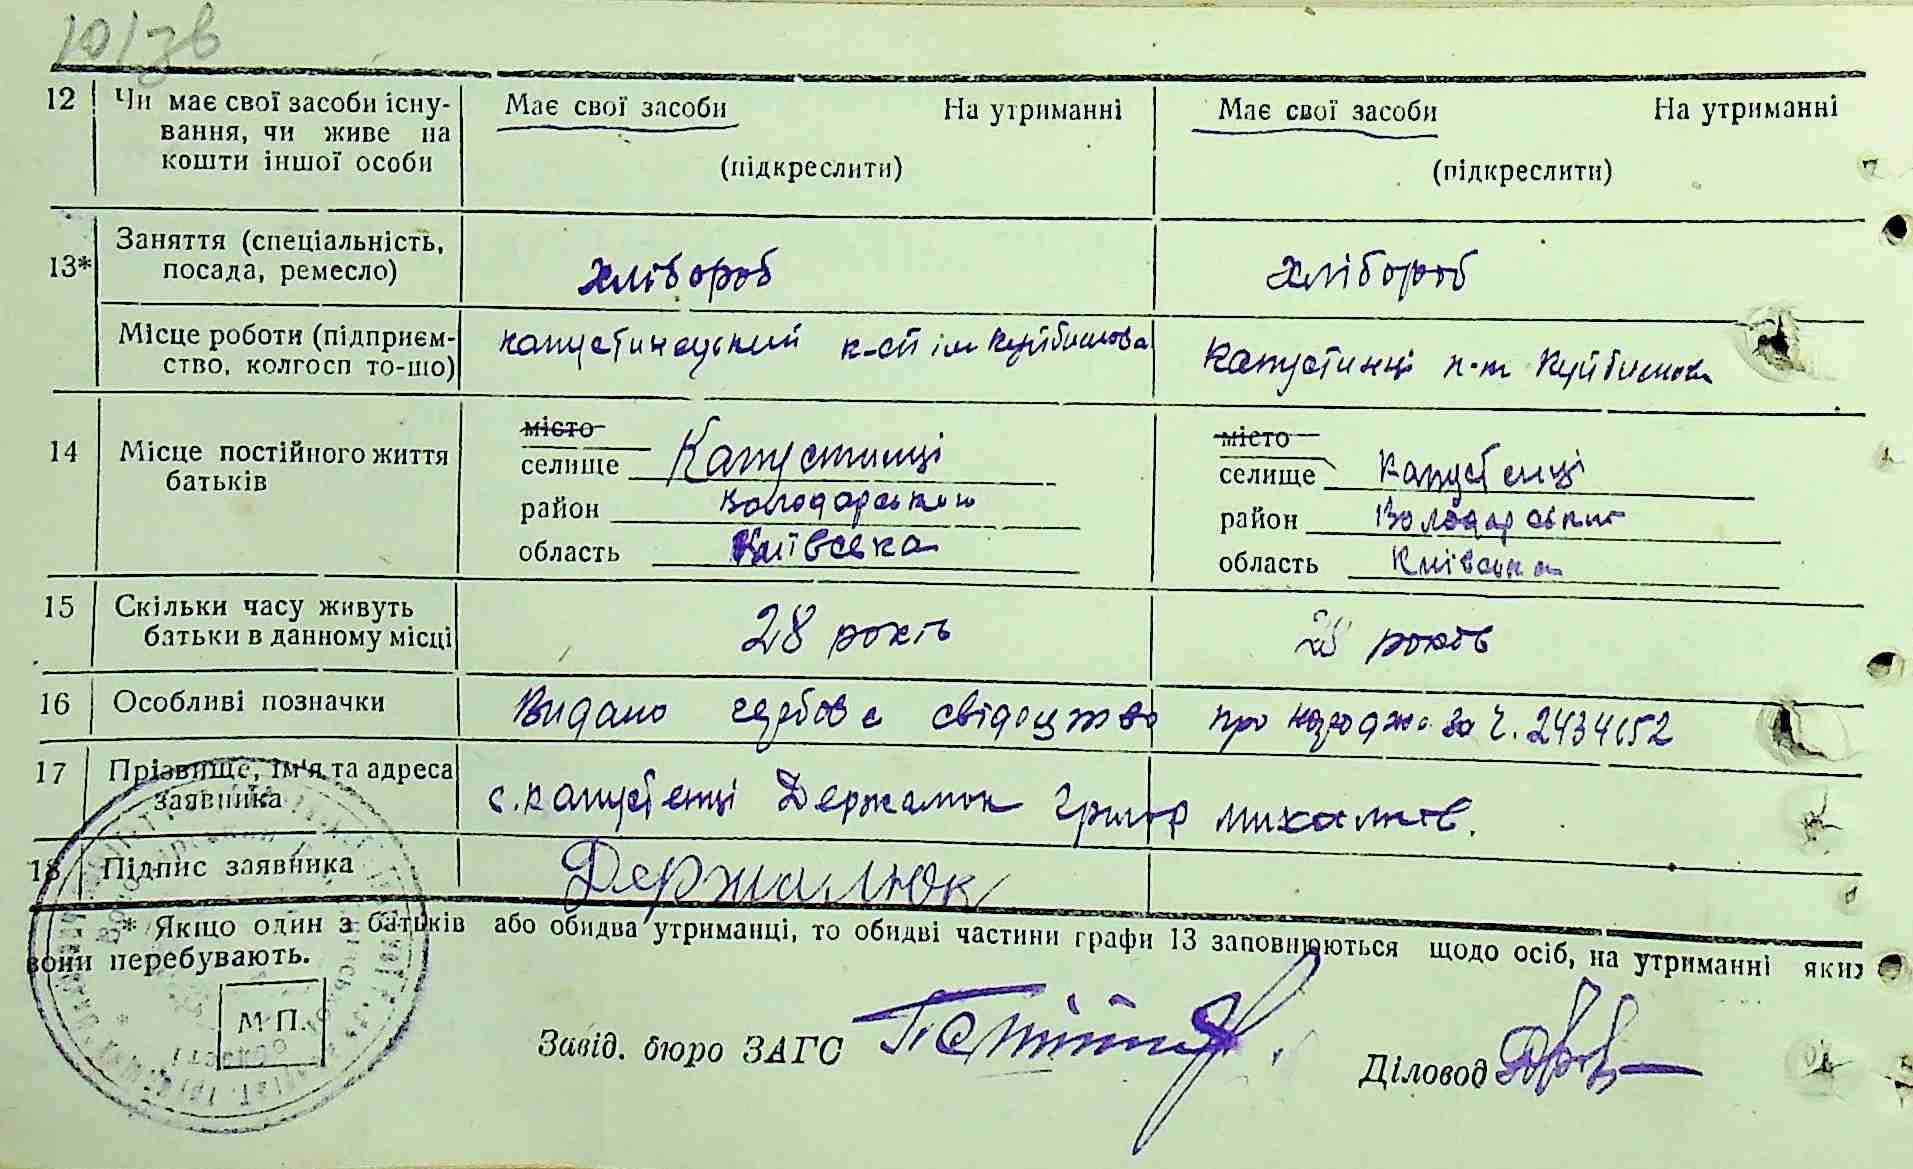 12 Чи має свої засоби існу- Має свої засоби На утриманні Має свої засоби На утриманні
вання, чи живе на
кошти іншої особи (підкреслити) (підкреслити)
13* Заняття (спеціальність,
посада, ремесло) хлібороб хлібороб
Місце роботи (підприєм- капустинецький к-сп ім Куйбишова Капустинці Куйбишова
ство, колгосп то-що)
14 Місце постійного життя місто місто
батьків селище Капустинці селище Капустенці
район Володарського район Володарський
область Київська область Київська
15 Скільки часу живуть
батьки в данному місці 28 років 28 років
16 Особливі позначки Видано гербове свідоцтво про народж. за ч. 2434652
17 Прізвище, ім'я та адреса
заявника с. Капустенці Держалюк Григор Михалків.
18 Підпис заявника Держалюк
* Якщо один з батьків або обидва утриманці, то обидві частини графи 13 заповнюються щодо осіб, на утриманні яких
вони перебувають.
М П.
Завід. бюро ЗАГС
Діловод